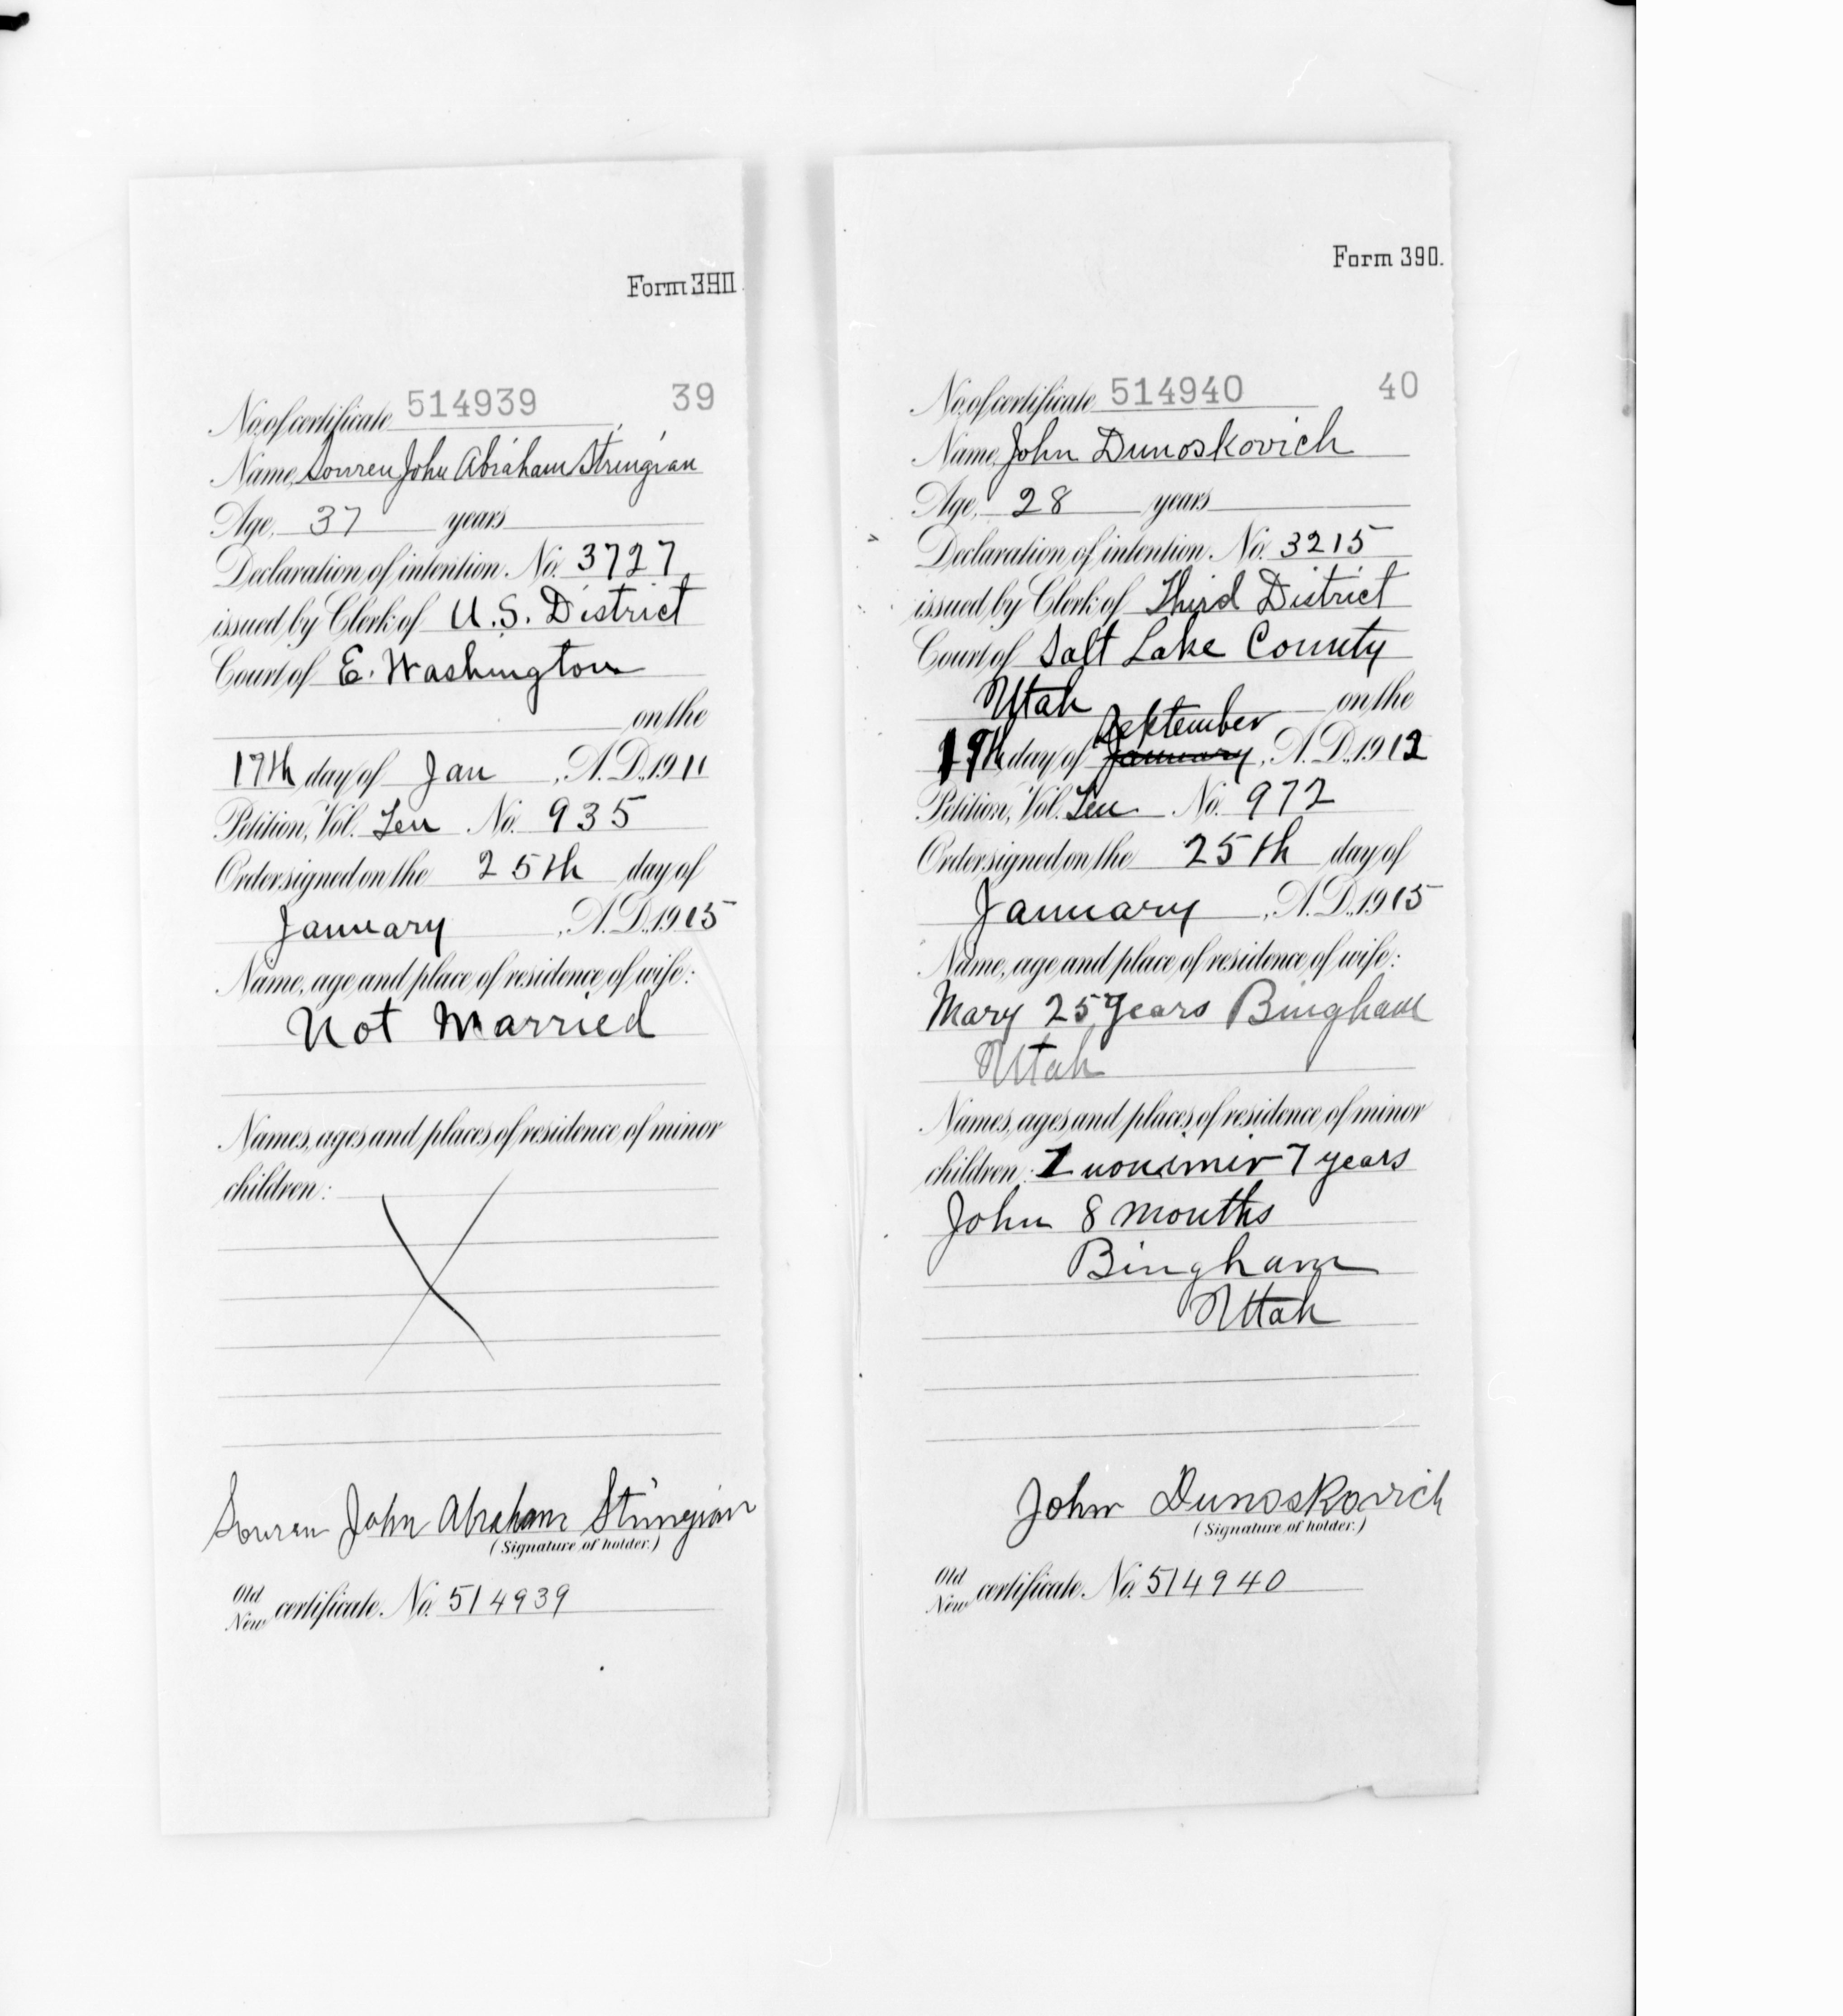 Form 390.
No. of certificate 514939 39
Name, Souren John Abraham Stringian
Age, 37 years
Declaration of intention No. 3727
issued by Clerk of U.S. District
Court of E. Washington
on the
17th day of Jan , A.D., 1911
Petition, Vol. Ten No. 935
Order signed on the 25th day of
January , A.D., 1915
Name, age and place of residence of wife:
Not Married
Names, ages and places of residence of minor
children:
Souren John Abraham
(Signature of holder.)
Old
New certificate No. 514939
Form 390.
No. of certificate 514940 40
Name, John Dunoskovich
Age, 28 years
Declaration of intention No. 3215
issued by Clerk of Third District
Court of Salt Lake County
Utah on the
September
day of January , A.D., 1912
Petition, Vol. Ten No. 972
Order signed on the 25th day of
January , A.D., 1915
Name, age and place of residence of wife:
Mary 25 years Bingham
Utah
Names, ages and places of residence of minor
children: 7 years
John 8 months
Bingham
Utah
John Dunoskovich
(Signature of holder.)
Old
New certificate No. 514940